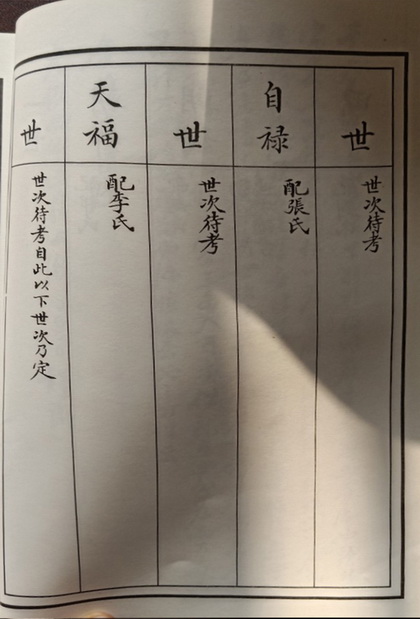 世
世次待考
自禄
配張氏
世
世次待考
天福
配李氏
世
世次待考自此以下世次乃定